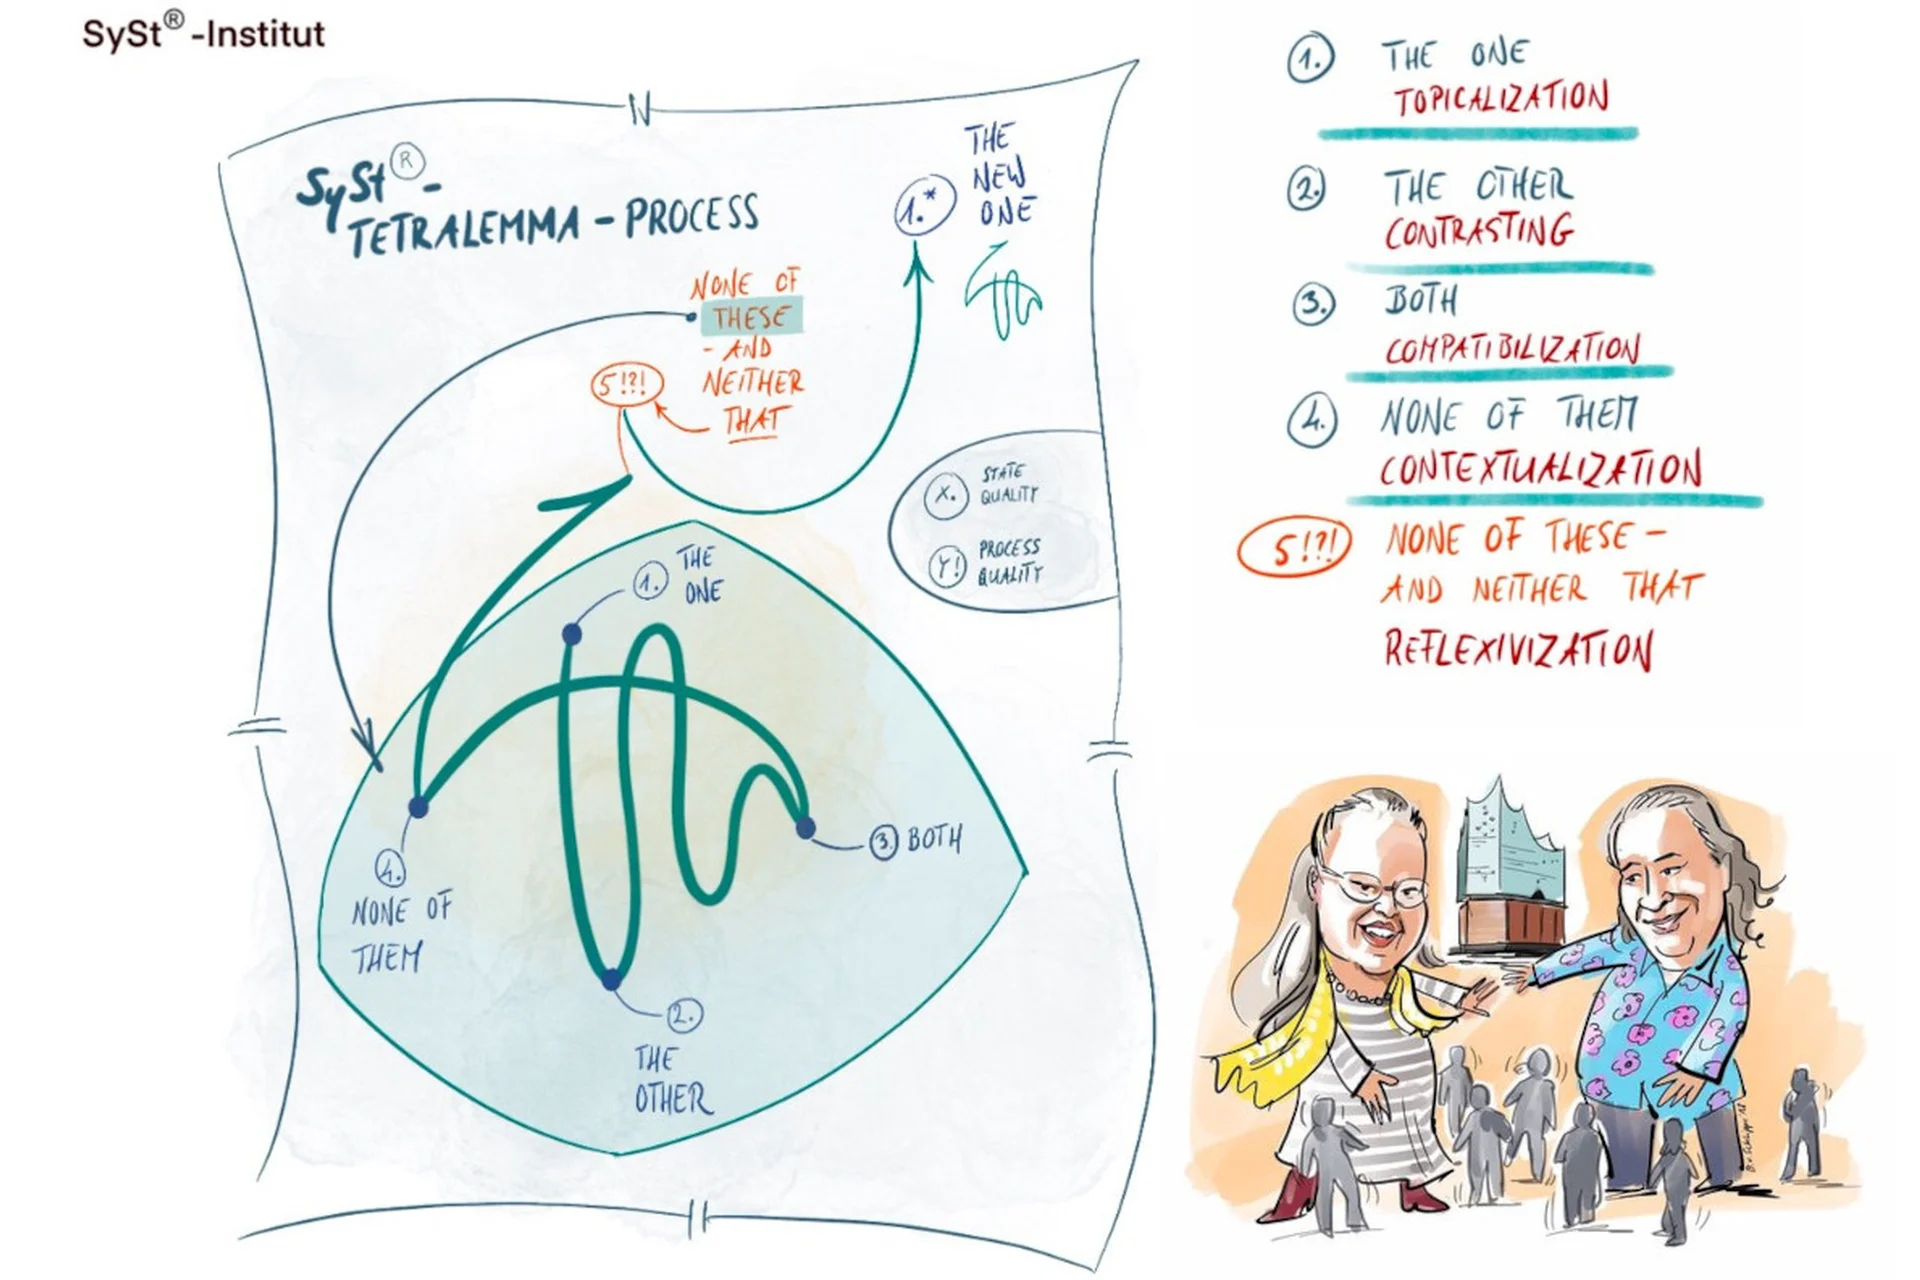 SySt® -Institut
SySt® -
TETRALEMMA - PROCESS
1.*
THE
NEW
ONE
NONE OF
THESE
- AND
NEITHER
THAT
5!?!
X.
STATE
QUALITY
Y!
PROCESS
QUALITY
1.
THE
ONE
3. BOTH
4.
NONE OF
THEM
2.
THE
OTHER
1. THE ONE
TOPICALIZATION
2. THE OTHER
CONTRASTING
3. BOTH
COMPATIBILIZATION
4. NONE OF THEM
CONTEXTUALIZATION
5!?! NONE OF THESE -
AND NEITHER THAT
REFLEXIVIZATION